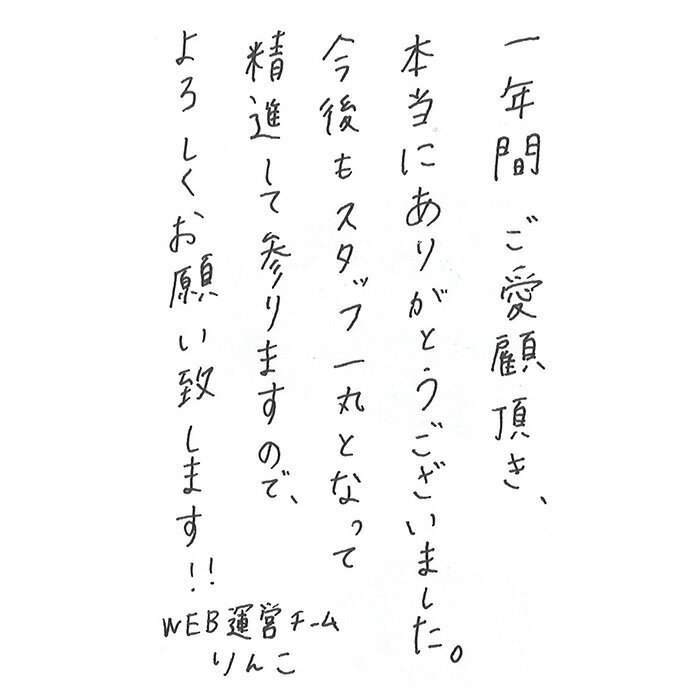 一年間ご愛顧頂き、
本当にありがとうございました。
今後もスタッフ一丸となって
精進して参りますので、
よろしくお願い致します!!
WEB運営チーム
りんこ